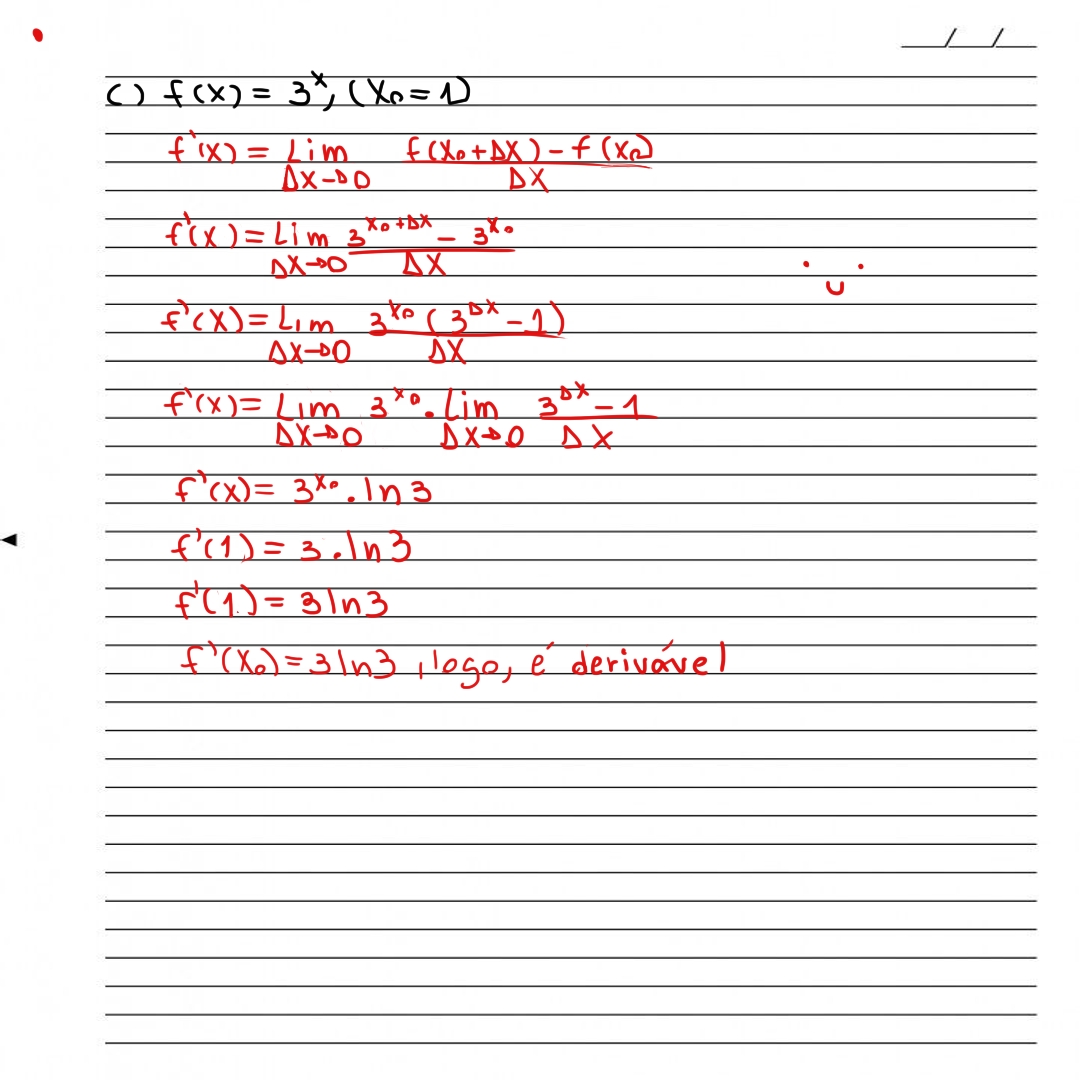 __/__/__
c) f(x) = 3^x, (x₀ = 1)
f'(x) = Lim Δx→0 f(x₀+Δx) - f(x₀) / Δx
f'(x) = Lim Δx→0 3^(x₀+Δx) - 3^x₀ / Δx
f'(x) = Lim Δx→0 3^x₀ (3^Δx - 1) / Δx
f'(x) = Lim Δx→0 3^x₀ . Lim Δx→0 3^Δx - 1 / Δx
f'(x) = 3^x₀ . ln 3
f'(1) = 3 . ln 3
f'(1) = 3 ln 3
f'(x₀) = 3 ln 3, logo, é derivável